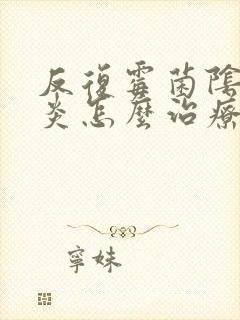 反復霉菌陰
炎怎麼治療
寧妹